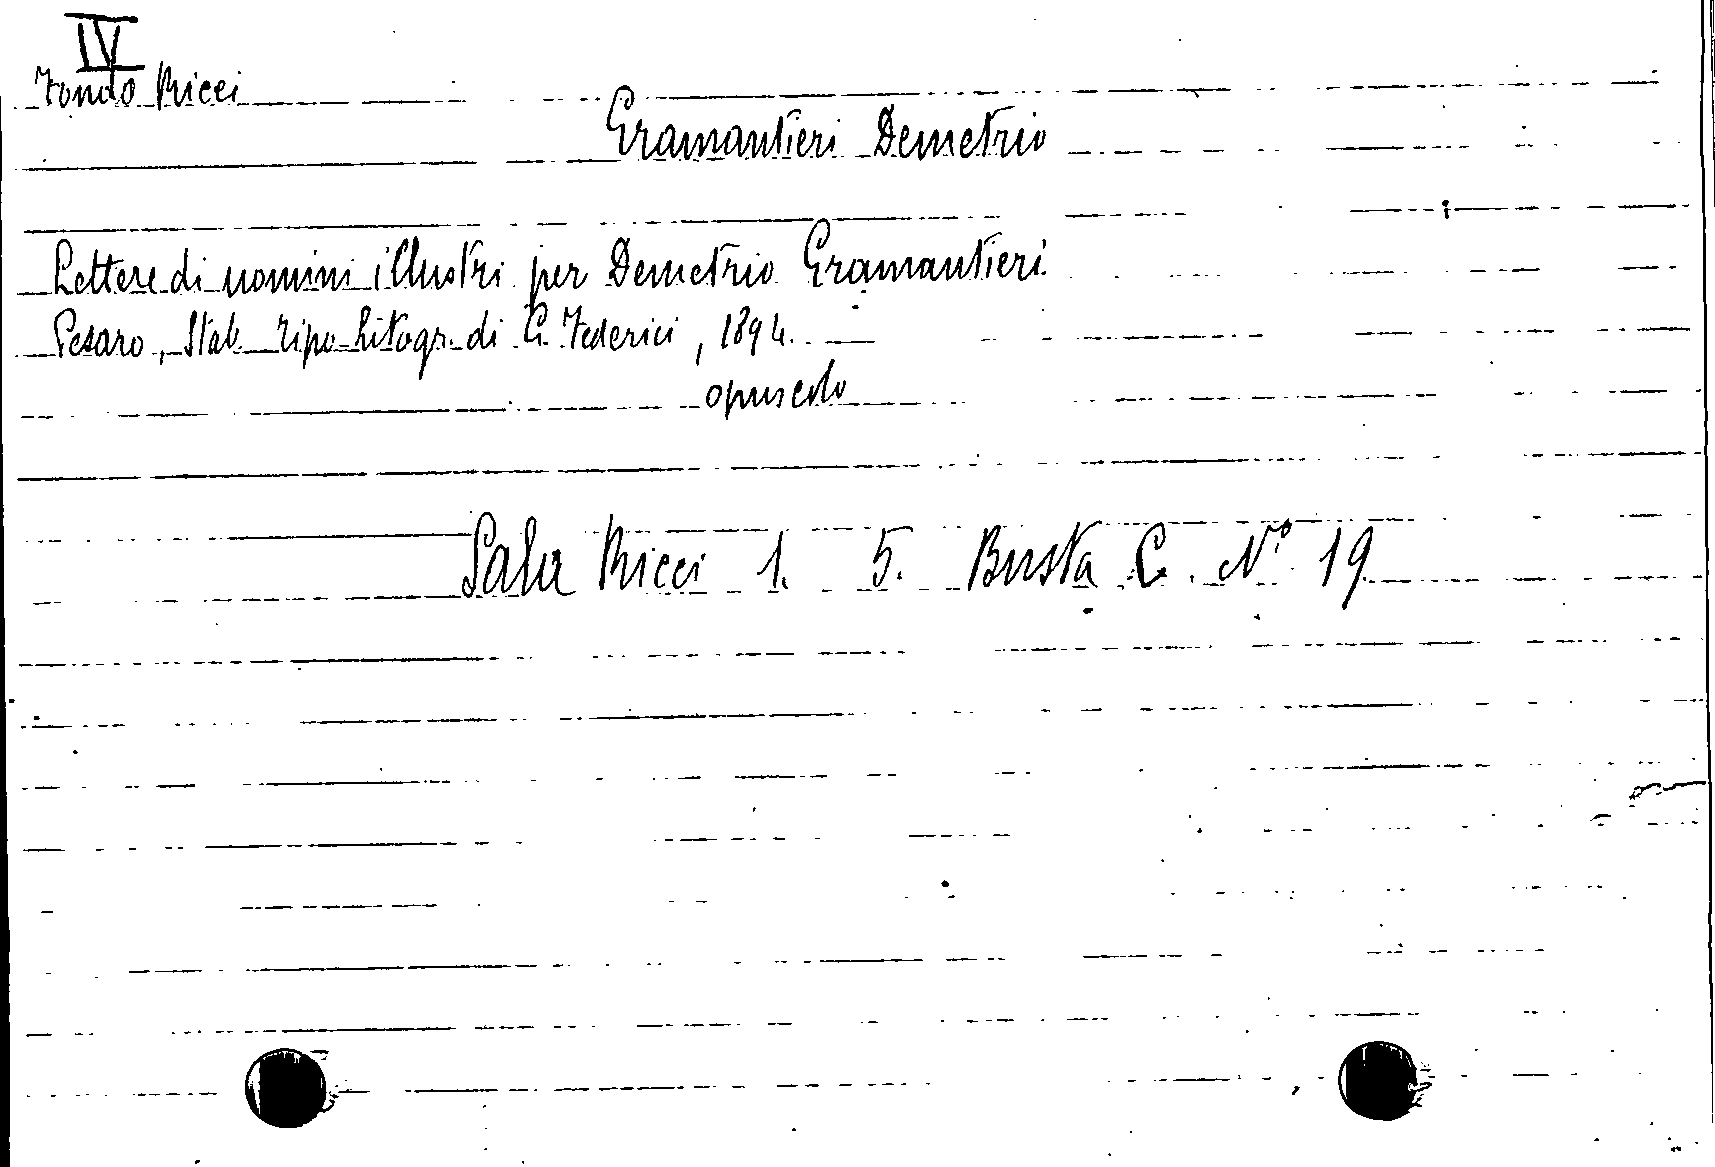 IV
Fondo Ricci
Gramantieri Demetrio
Lettere di uomini illustri per Demetrio Gramantieri.
Pesaro, Stab. Tipo-Litogr. di G. Federici, 1894.
opuscolo
Sala Ricci 1. 5. Busta C. N.° 19